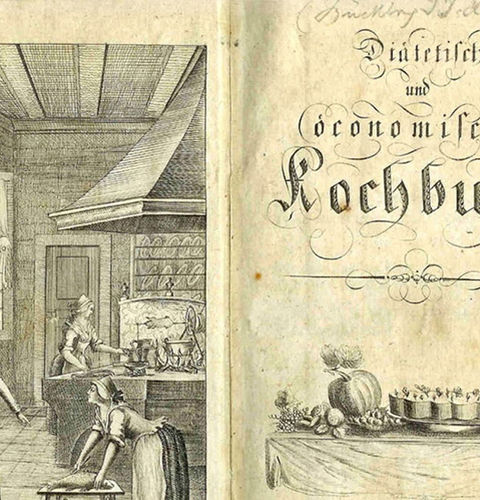 Diätetisch
und
öconomisc
Kochbu